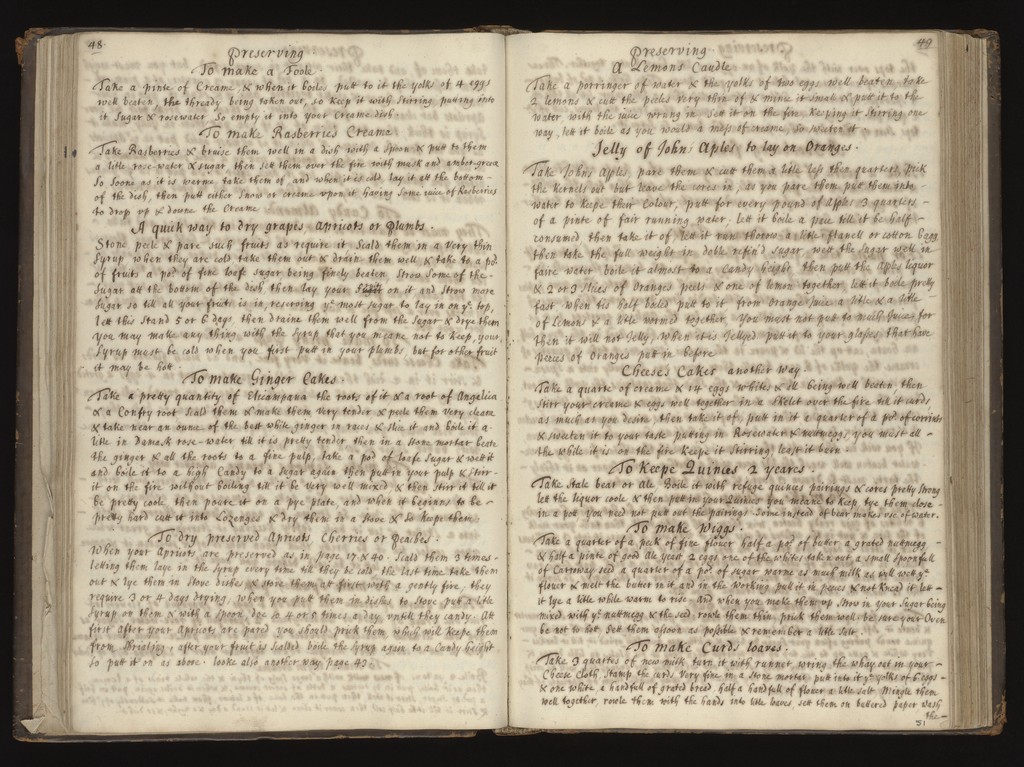 48
Preserving
To make a Foole
Take a pinte of Creame, & when it boiles putt to it the yolks of 4 eggs
well beaten, the thready being taken out, so Keep it with Stirring putting into
it Sugar & rosewater So empty it into your Creame dish.
To make Rasberries Creame
Take Rasberries & bruise them well in a dish with a Spoon & putt to them
a litle rose-water & sugar, then sett them over the fire with musk and amber-greece
So Soone as it is warme take them of, and when it is cold, lay it att the bottom-
of the dish, then putt either Snow or creame upon it having Some iuice of Rasberries
to drop up & downe the Creame
A quick way to dry grapes Apricots or Plumbs.
Stone peele & pare such fruits as require it Scald them in a very thin
Syrup when they are cold take them out & drain them well & take to a pod.
of fruits a pod. of fine loafe sugar being finely beaten Strow Some of the-
Sugar att the bottom of the dish then lay your on it and Strow more
Sugar so till all your fruits is in, reserving ye. most sugar to lay in on ye. top,
lett this Stand 5 or 6 days then draine them well from the Sugar & drye them
you may make any thing with the Syrup that you meane not to Keep, your
Syrup must be cold when you first putt in your plumbs but for other fruit
it may be hott.
To make Ginger Cakes.
Take a pretty quantity of Elicampana the roots of it & a root of Angelica
& a Comfry root Scald them & make them very tender & peele them very cleane
& take near an ounce of the best white ginger in races & slice it and boile it a-
litle in Damask rose-water till it is pretty tender then in a Stone mortar beate
the ginger & all the roots to a fine pulp, take a pod of loafe Sugar & wett it
and boile it to a high Candy to a Sugar again then putt in your pulp & Stirr-
it on the fire without boiling till it be very well mixed & then Stirr it till it
be pretty coole then poure it on a pye plate, and when it beginns to be-
pretty hard cutt it into Lozenges & Dry them in a Stove & So Keepe them
To dry preserved Apricots Cherries or Peaches.
When your Apricots are preserved as in page & 40. Scald them 3 times-
letting them laye in the Syrup every time till they be cold the last time take them
out & lye them in Stove dishes & store them att first with a gently fire, they
require 3 or 4 days drying, when you putt them in dishes to Stove putt a litle
syrup on them & with a Spoon, doe so 4 or 5 times a day, untill they candy. Att
first after your Apricots are pared you should prick them which will keepe them
from, after your fruit is Scalded boile the Syrup again to a Candy height
so putt it on as above. looke also another way page 43
49
Preserving
A Lemons Caudle
Take a porringer of water & the yolks of two eggs well beaten, take
2 lemons & cutt the peeles very thin of & mince it small & putt it to the
water, with the iuice wrung in Sett it on the fire, Keeping it Stirring one
way, lett it boile as you would a mess of creame, So sweeten it.
Jelly of John: Aples to lay on Oranges.
Take Johns Aples pare them & cutt them a litle less then quarters, pick
the Kernels out but leave the cores in, as you pare them put them into
water to Keepe their Colour, putt for every pound of Aples 3 quarters-
of a pinte of fair running water. lett it boile a pace till it be half-
consumed then take it of lett it run thorow a litle flanell or cotton bagg
then take the full weight in doble refin'd sugar, wett the Sugar well in
faire water boile it almost to a Candy height then putt the Aples liquor
& 2 or 3 slices of Oranges peels & one of lemon together lett it boile pretty
fast when tis half boiled putt to it from Orange Juice a litle & a litle
of Lemons & a litle wormed together, You must not put to much Juice, for
then it will not Jelly, When it is Jellyed putt it to your glasses that have
peeces of Oranges putt in before
Cheeses Cakes another way.
Take a quarte of creame & 14 eggs whites & all being well beaten, then
Stirr your creame & eggs well together in a Skelet over the fire till it curds
as much as you desire, then take it of putt in it a quarter of a pod. of corrints
& sweeten it to your taste putting in Rosewater & nuttmeggs, you must all-
the while it is on the fire Keepe it Stirring least it burn.
To Keepe Quinces 2 yeares.
Take Stale bear or Ale Boile it with refuge quinces pairings & cores pretty Strong
lett the liquor coole & then putt in your Quinces you meane to Keep tye them close-
in a pott you need not putt out the pairings. Some instead of bear makes use of water.
To make Wiggs.
Take a quarter of a peck of fine flower half a pod. of butter a grated nuttmegg
& half a pinte of good Ale yeast 2 eggs one of the whites taken out, a small spoonfull
of Carraway seed a quarter of a pod. of sugar warme as much milk as will wett ye.
flower & melt the butter in it and in the working pull it in peeces & not Knead it lett-
it lye a litle while warme to rise and when you make them up Strow in your Sugar being
mixed with ye. nuttmegg & the seed. rowle them thin, prick them well, be sure your Oven
be not to hot Sett them assoon as possible & remember a litle Salt.
To make Curds loaves.
Take 3 quartes of new milk turn it with runnet wring the whay out in your-
Cheese Cloth Stamp the curds very fine in a Stone mortar putt into it ye. yolks of 6 eggs-
& one white a handfull of grated bread, half a handfull of flower a litle salt Mingle them
well together, rowle them with the hands into litle loaves, sett them on buttered paper wash
the-
51